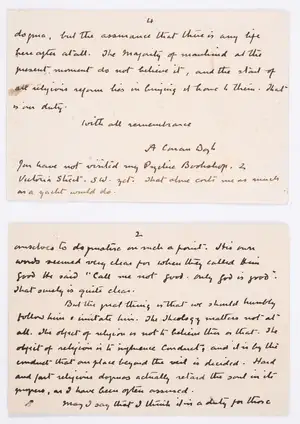 4
dogma, but the assurance that there is any life
hereafter at all. The Majority of mankind at the
present moment do not believe it, and the start of
all religious reform lies in bringing it home to them. That
is our duty.
With all remembrance
A Conan Doyle
You have not visited my Psychic Bookshop. 2
Victoria Street. S.W. yet. That alone costs me as much
as a yacht would do.
2
ourselves to dogmatise on such a point. His own
words seemed very clear for when they called Him
good He said "Call me not good. only God is good".
That surely is quite clear.
But the great thing is that we should humbly
follow him & imitate him. The Theology matters not at
all. The object of religion is not to believe this or that. The
object of religion is to influence Conduct, and it is by the
conduct that our place beyond the veil is decided. Hard
and fast religious dogmas actually retard the soul in its
progress, as I have been often assured.
May I say that I think it is a duty for those